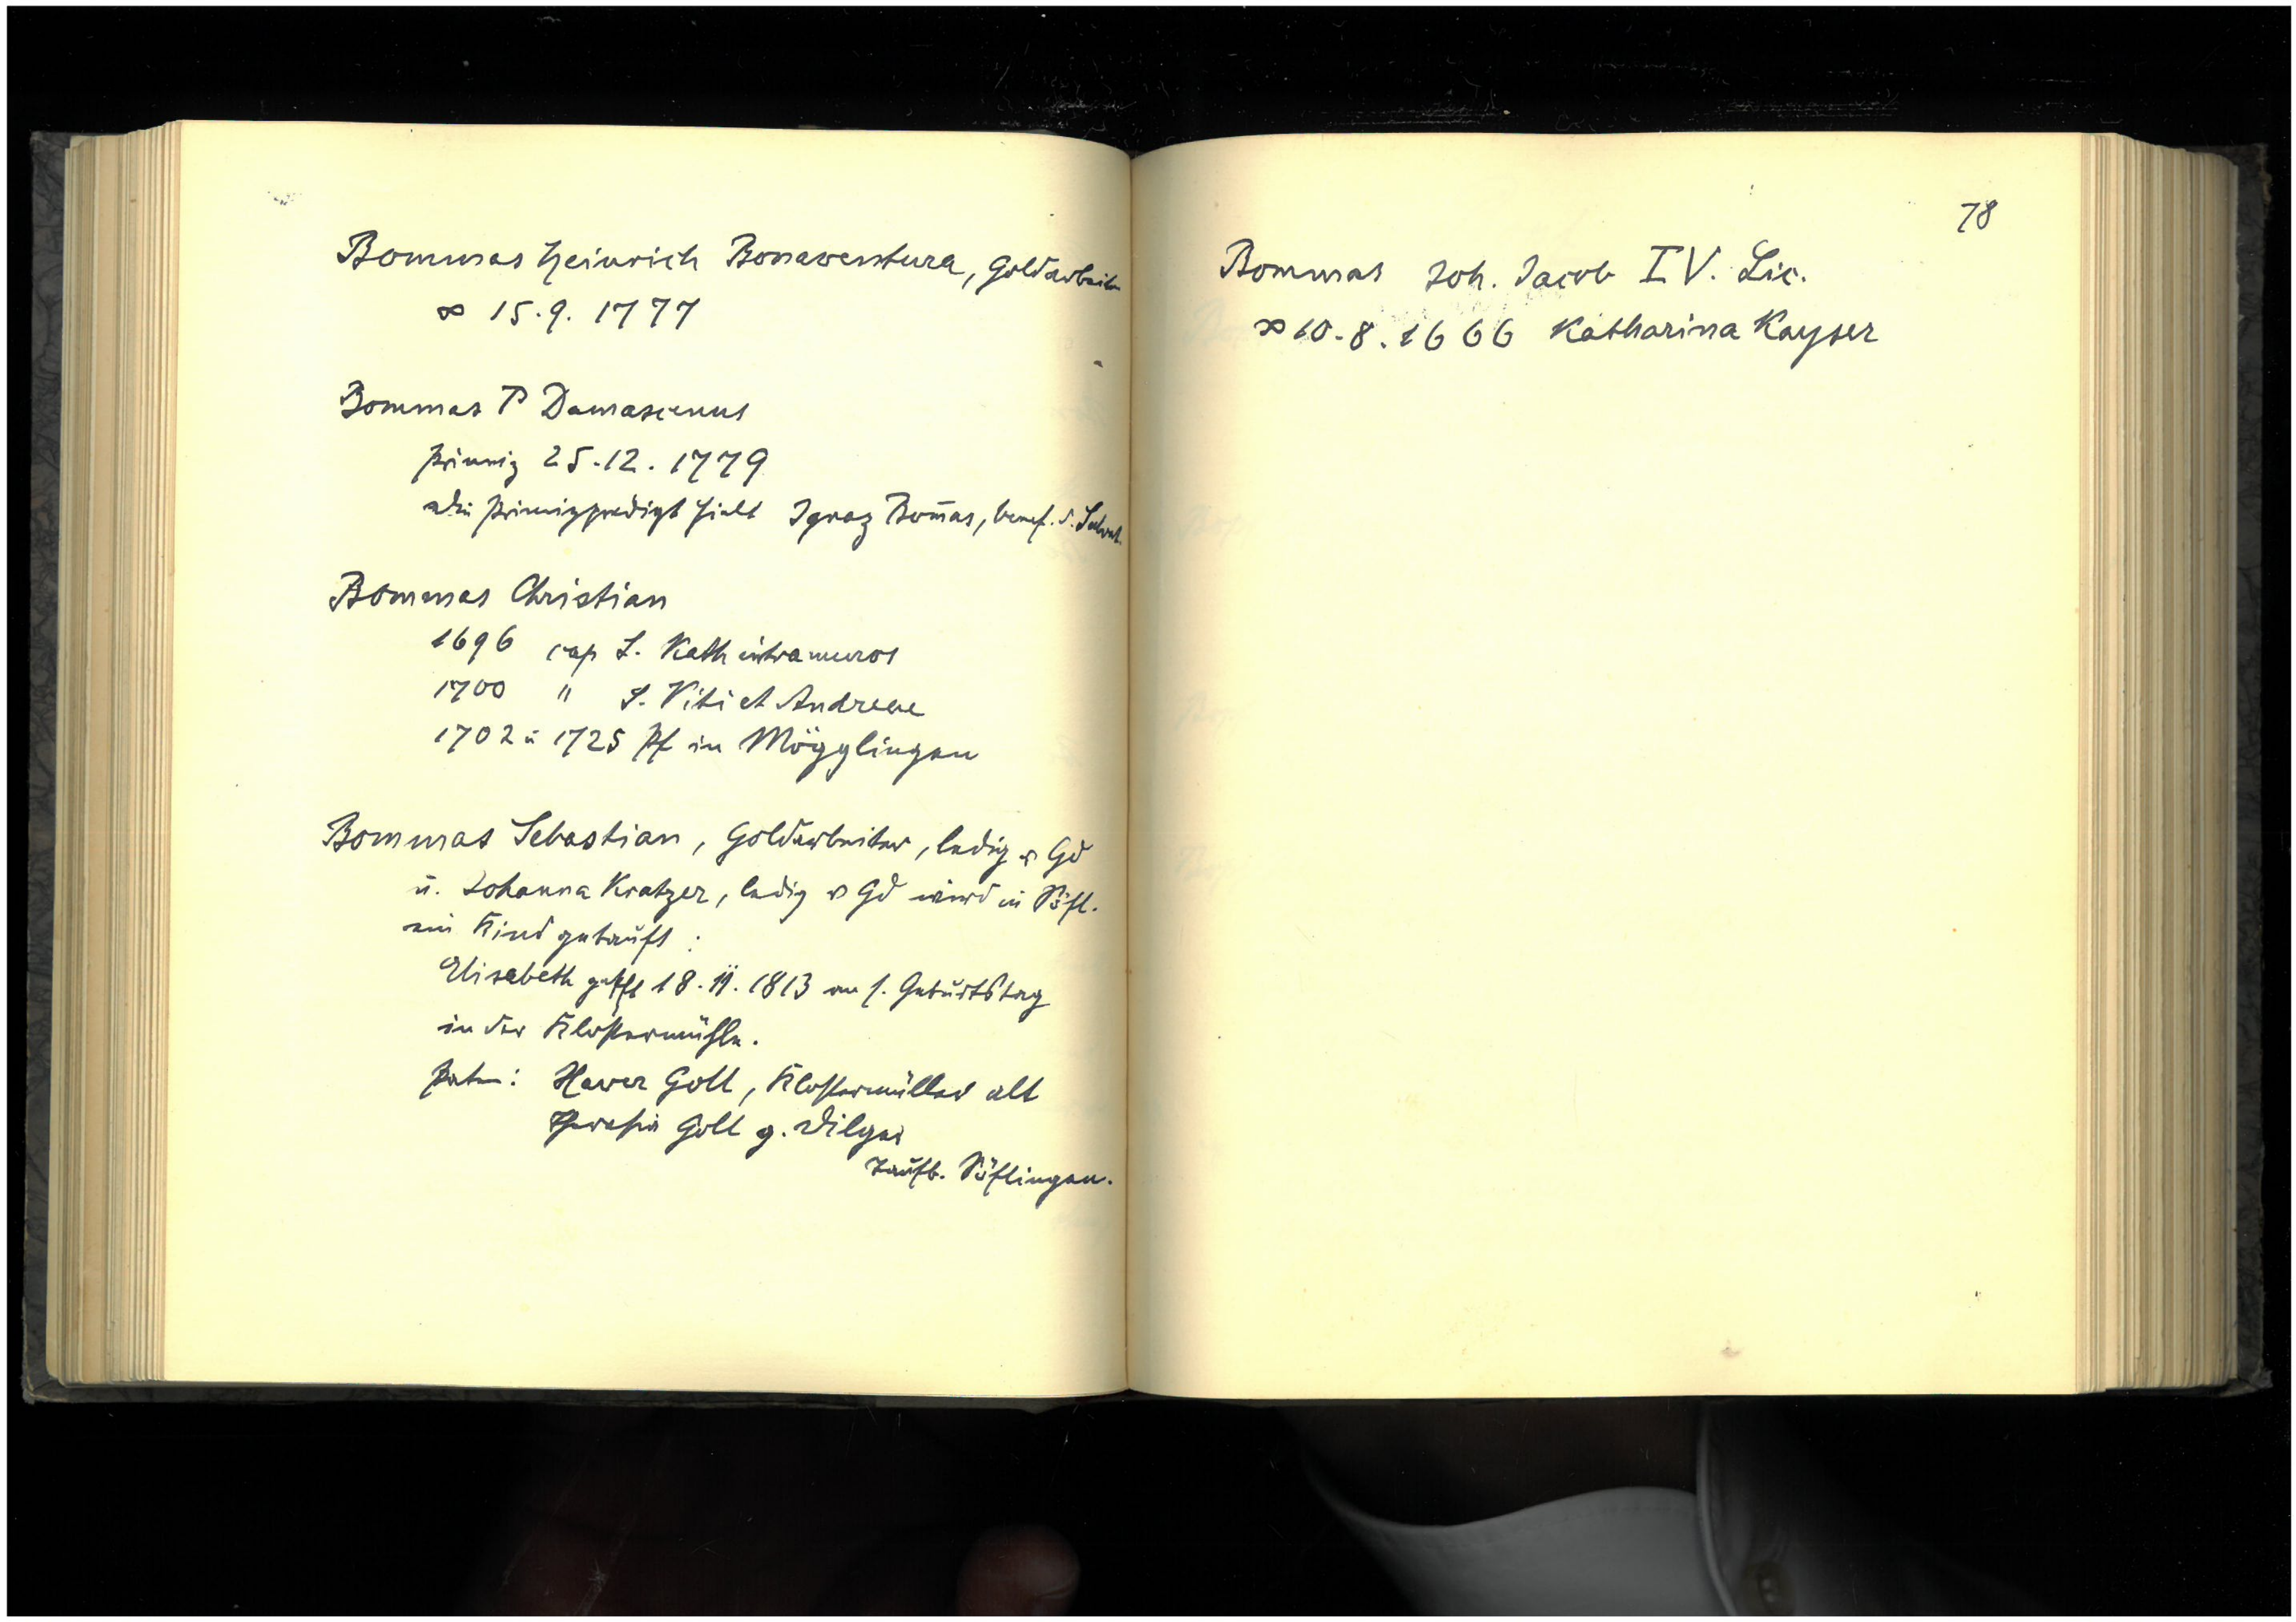 Bommas Heinrich Bonaventura, Goldarbeiter
∞ 15.9. 1777
Bommas P Damascenus
Primiz 25.12. 1779
die Primizpredigt hielt Ignaz Bom̄as, benef. S. Salvat.
Bommas Christian
1696 cap S. Kath intra muros
1700 " S. Viti et Andreae
1702 u 1725 Pf in Mögglingen
Bommas Sebastian, Goldarbeiter, ledig v Gd
u. Johanna Kratzer, ledig v Gd wird in Söfl.
ein Kind getauft :
Elisabeth get 18.11.1813 am s. Geburtstag
in der Klostermühle.
Paten: Xaver Goll, Klostermüller alt
Theresia Goll g. Dilger
Taufb. Söflingen.
78
Bommas Joh. Jacob I V. Lic.
∞ 10.8.1666 Katharina Kayser